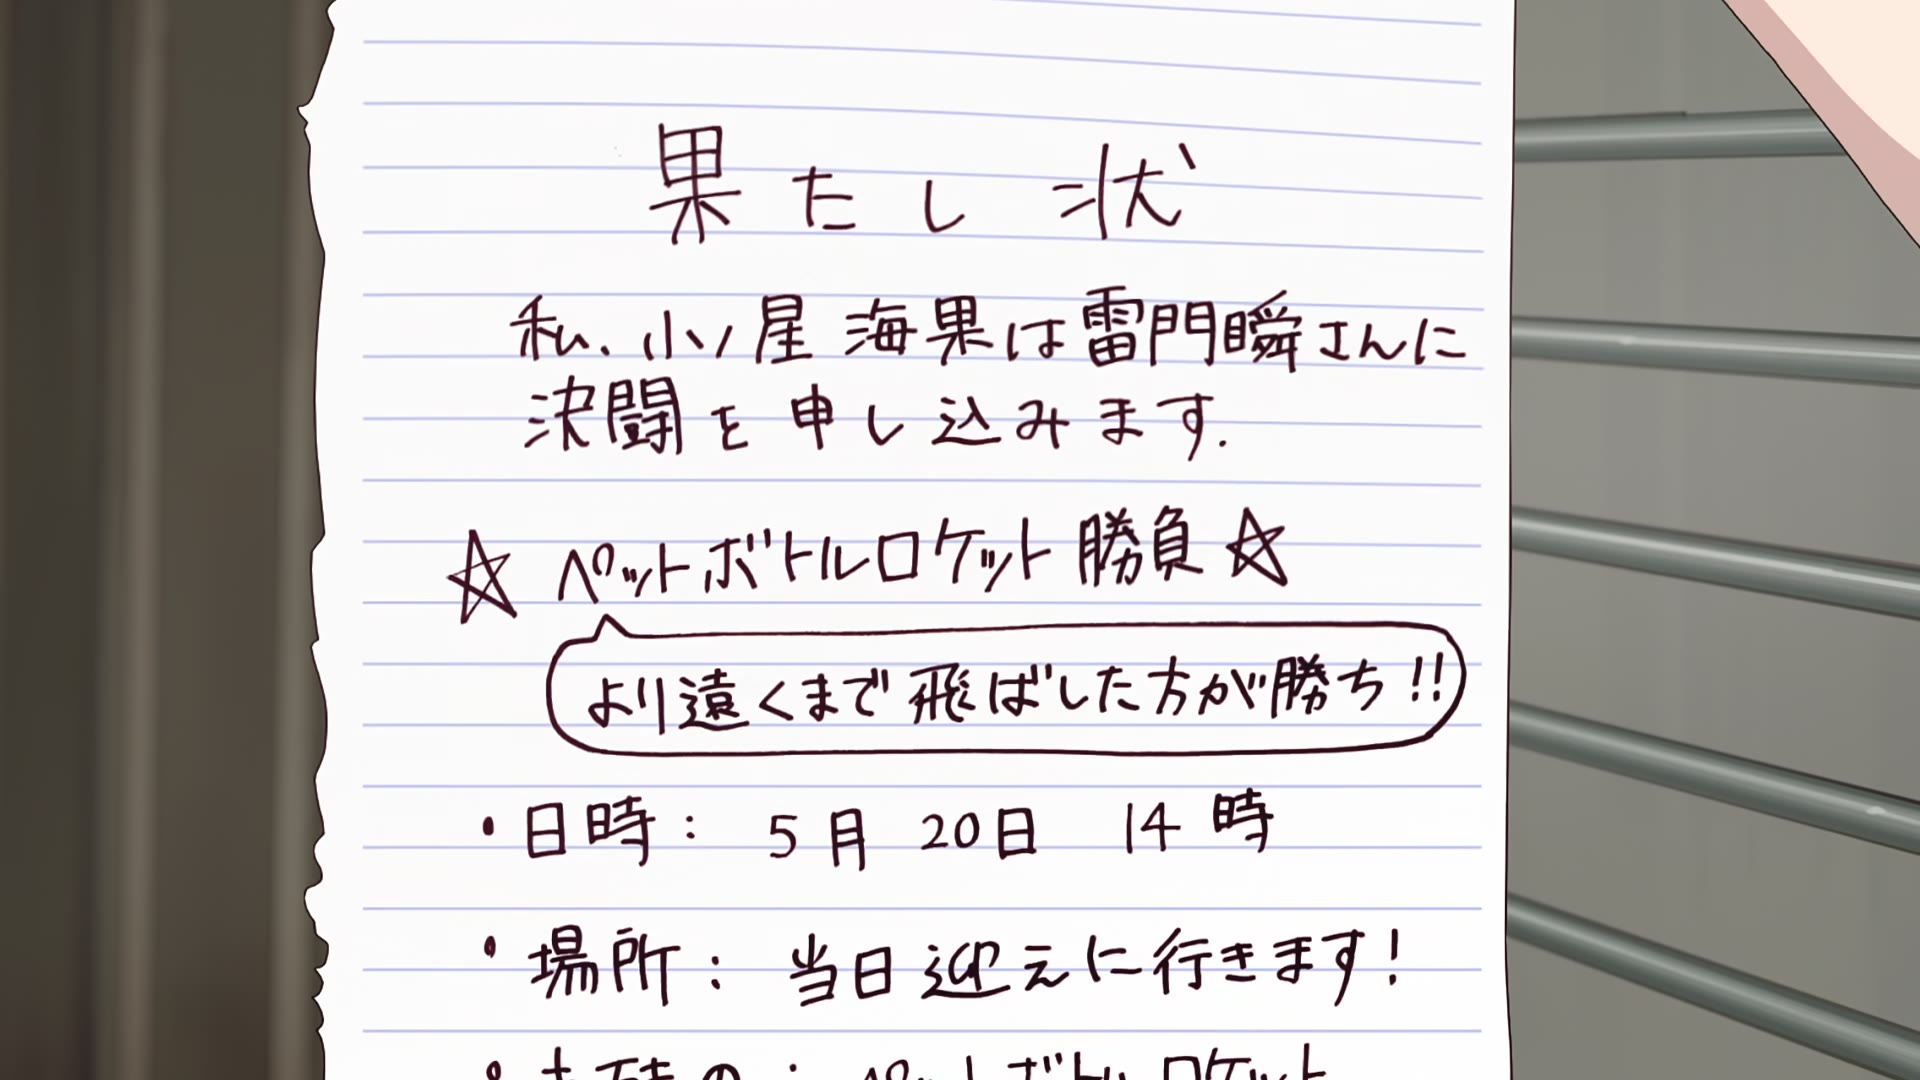 果たし状
私、小ノ星海果は雷門瞬さんに
決闘を申し込みます.
☆ ペットボトルロケット勝負 ☆
より遠くまで飛ばした方が勝ち!!
・日時: 5月 20日 14時
・場所: 当日迎えに行きます!
・お題の: ペットボトルロケット